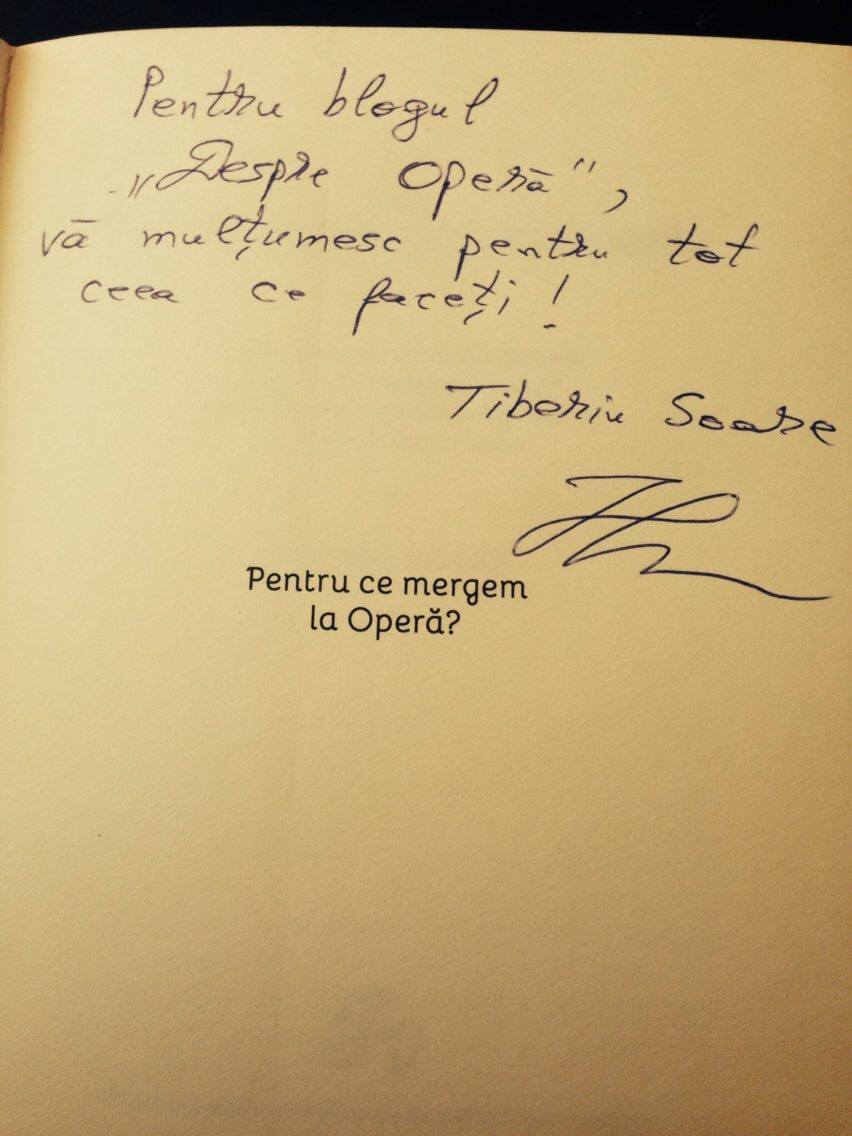 Pentru blogul
„Despre Operă",
vă mulțumesc pentru tot
ceea ce faceți!
Tiberiu Soare
Pentru ce mergem
la Operă?